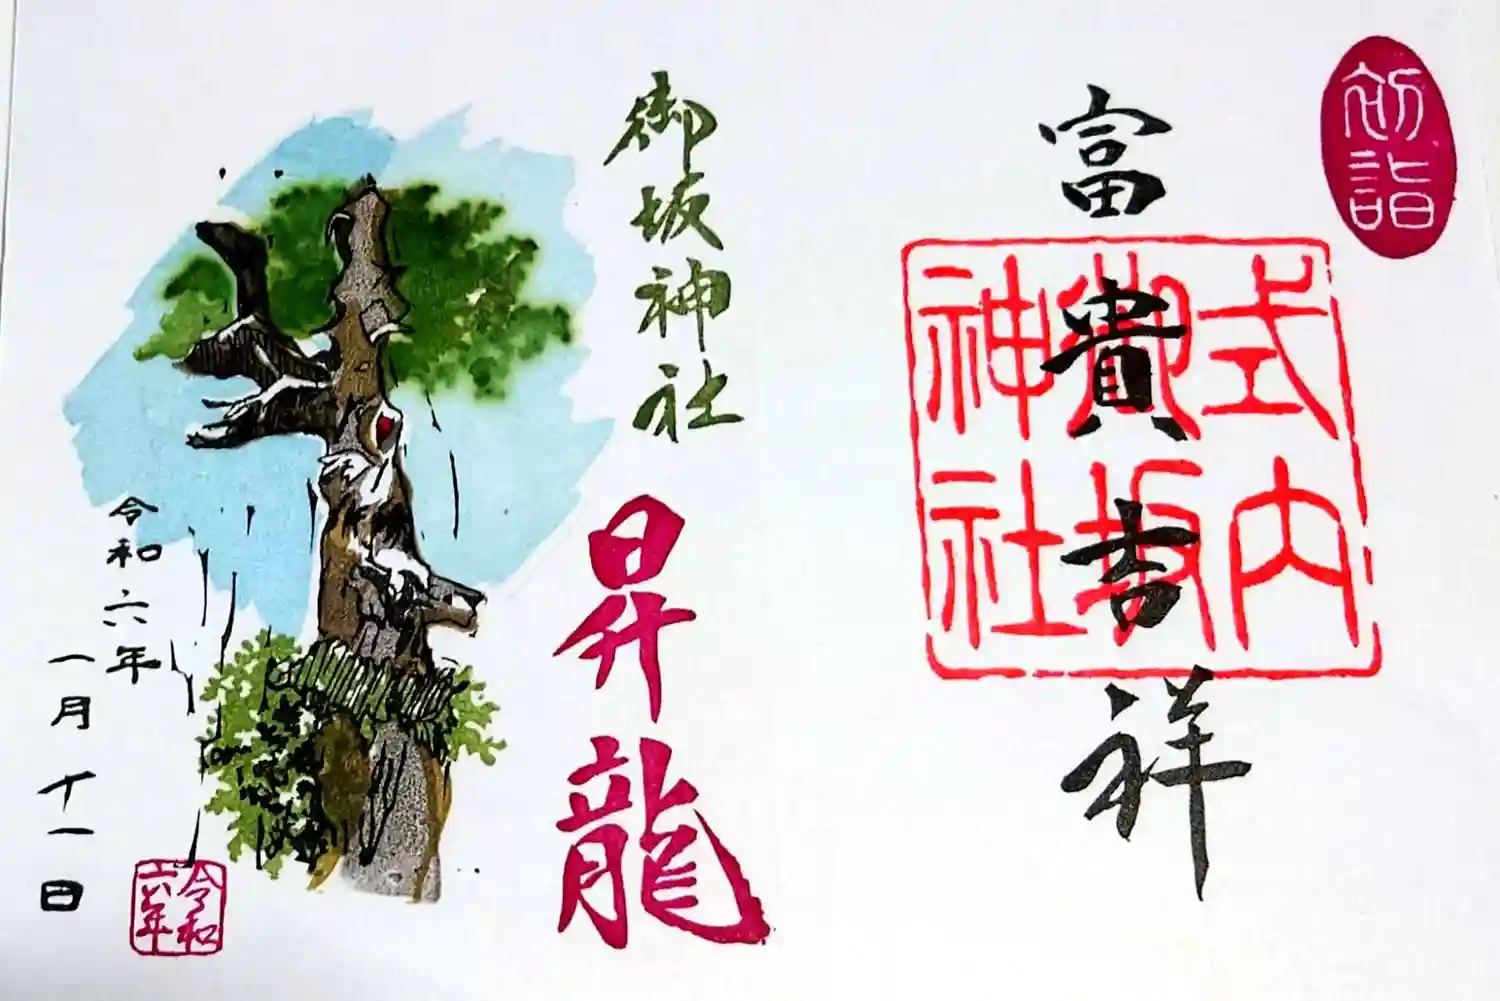 初詣
富貴吉祥
式内
御坂
神社
御坂神社
昇龍
令和六年
一月十一日
令和
六年